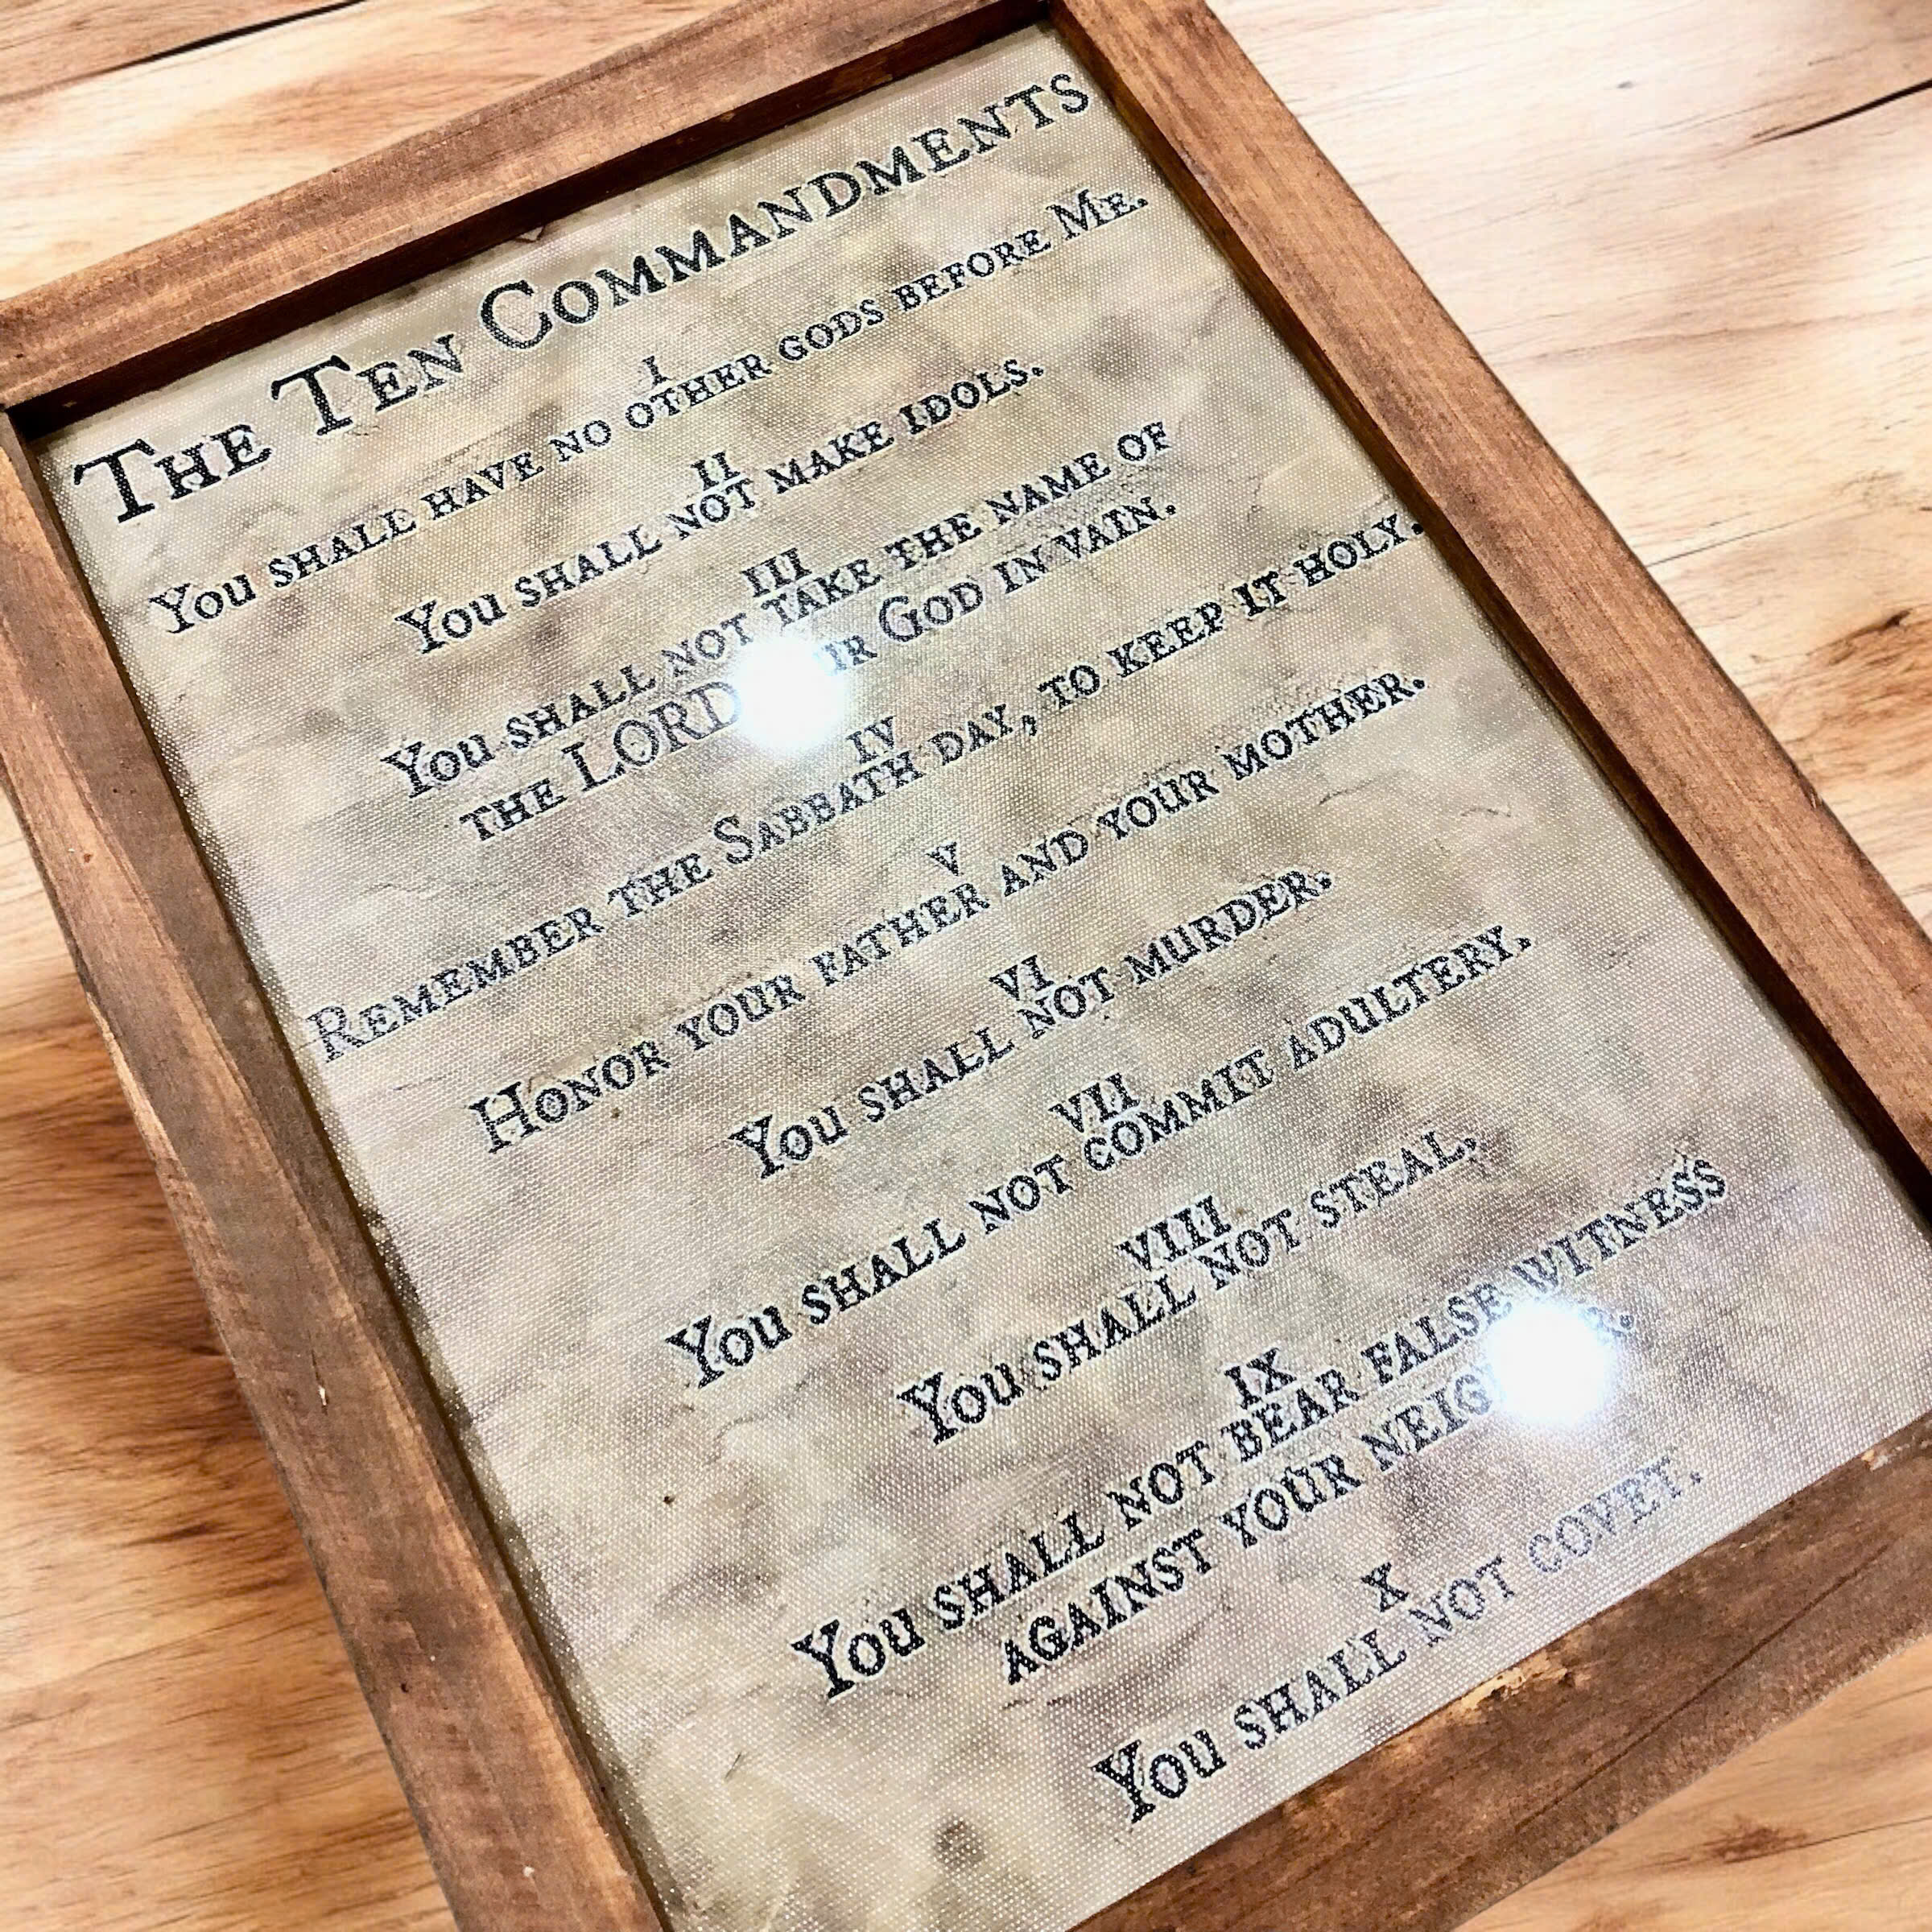 The Ten Commandments
I
You shall have no other gods before Me.
II
You shall not make idols.
III
You shall not take the name of
the LORD God in vain.
IV
Remember the Sabbath day, to keep it holy.
V
Honor your father and your mother.
VI
You shall not murder.
VII
You shall not commit adultery.
VIII
You shall not steal.
IX
You shall not bear false witness
against your
X
You shall not covet.